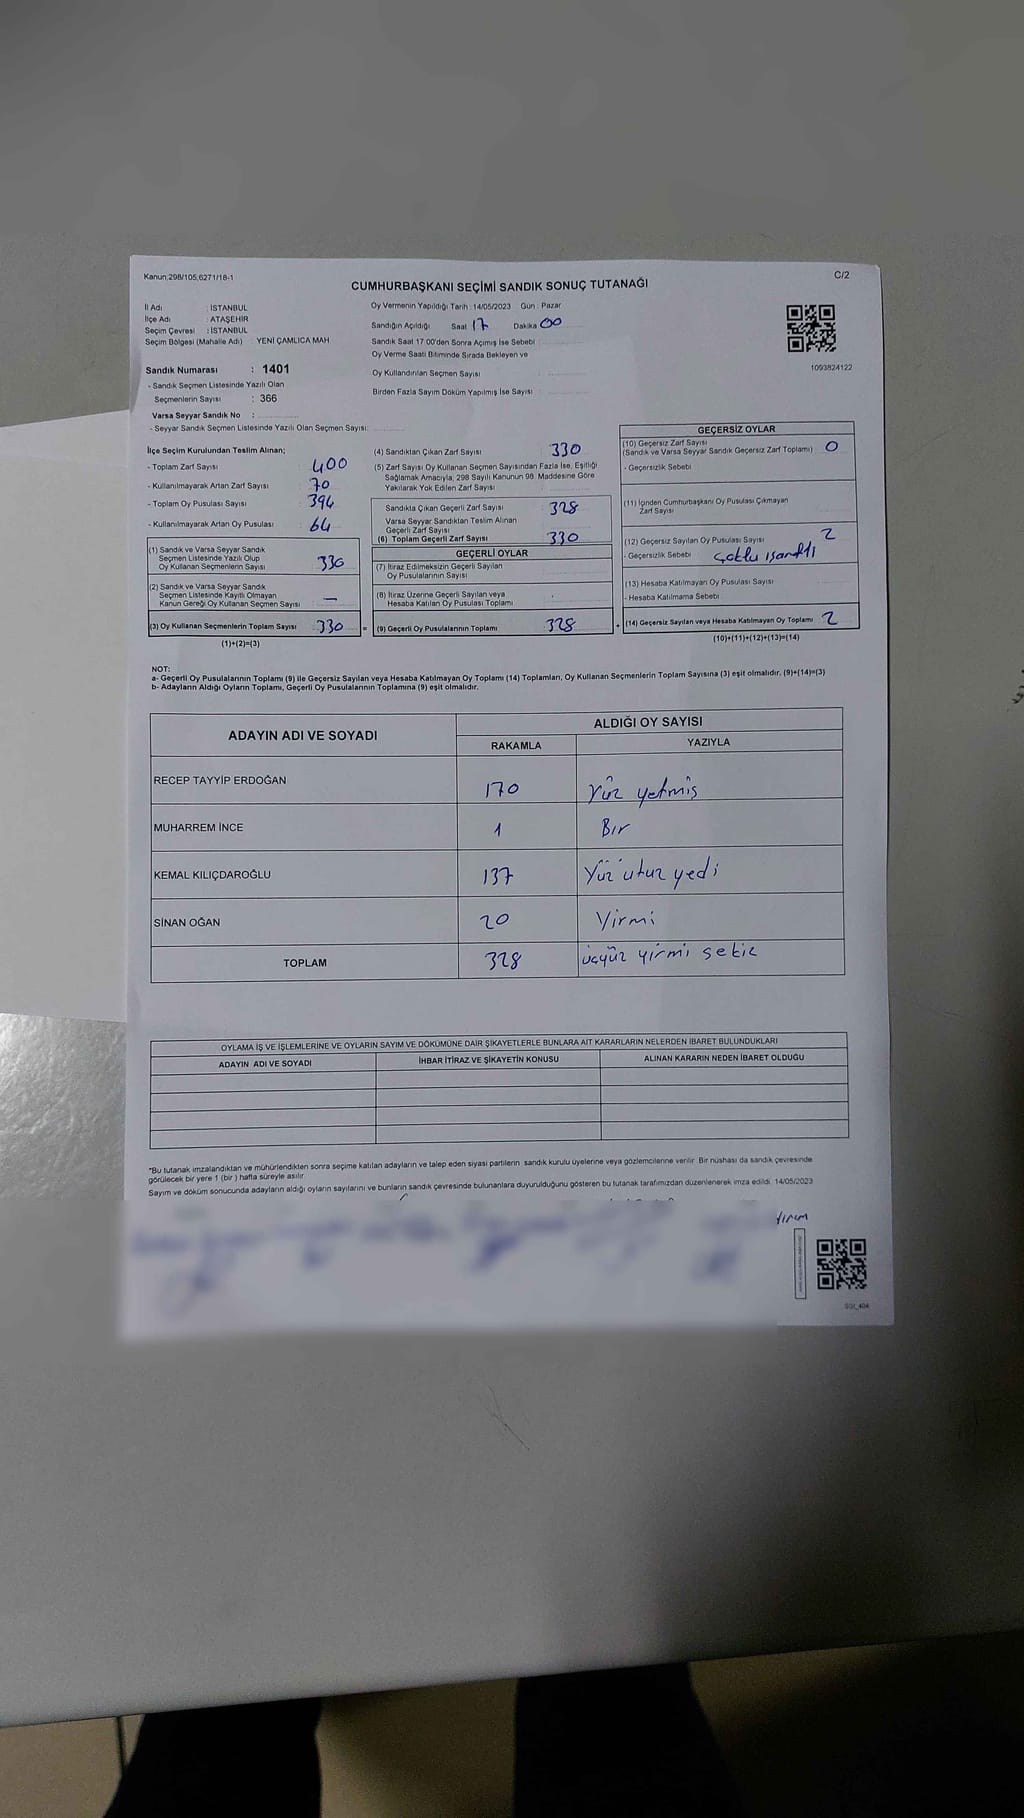 Kanun;298/105,6271/18-1
C/2
CUMHURBAŞKANI SEÇİMİ SANDIK SONUÇ TUTANAĞI
İl Adı : İSTANBUL
İlçe Adı : ATAŞEHİR
Seçim Çevresi : İSTANBUL
Seçim Bölgesi (Mahalle Adı) : YENİ ÇAMLICA MAH
Sandık Numarası : 1401
- Sandık Seçmen Listesinde Yazılı Olan
Seçmenlerin Sayısı : 366
Varsa Seyyar Sandık No :
- Seyyar Sandık Seçmen Listesinde Yazılı Olan Seçmen Sayısı:
Oy Vermenin Yapıldığı Tarih :14/05/2023 Gün : Pazar
Sandığın Açıldığı Saat 17 Dakika 00
Sandık Saat 17.00'den Sonra Açımış İse Sebebi :
Oy Verme Saati Bitiminde Sırada Bekleyen ve
Oy Kullandırılan Seçmen Sayısı :
Birden Fazla Sayım Döküm Yapılmış İse Sayısı :
1093824122
İlçe Seçim Kurulundan Teslim Alınan;
- Toplam Zarf Sayısı : 400
- Kullanılmayarak Artan Zarf Sayısı : 70
- Toplam Oy Pusulası Sayısı : 394
- Kullanılmayarak Artan Oy Pusulası : 64
(1) Sandık ve Varsa Seyyar Sandık
Seçmen Listesinde Yazılı Olup
Oy Kullanan Seçmenlerin Sayısı : 330
(2) Sandık ve Varsa Seyyar Sandık
Seçmen Listesinde Kayıtlı Olmayan
Kanun Gereği Oy Kullanan Seçmen Sayısı : —
(3) Oy Kullanan Seçmenlerin Toplam Sayısı : 330 =
(1)+(2)=(3)
(4) Sandıktan Çıkan Zarf Sayısı : 330
(5) Zarf Sayısı Oy Kullanan Seçmen Sayısından Fazla İse, Eşitliği
Sağlamak Amacıyla; 298 Sayılı Kanunun 98. Maddesine Göre
Yakılarak Yok Edilen Zarf Sayısı :
Sandıkta Çıkan Geçerli Zarf Sayısı : 328
Varsa Seyyar Sandıktan Teslim Alınan
Geçerli Zarf Sayısı :
(6) Toplam Geçerli Zarf Sayısı : 330
GEÇERLİ OYLAR
(7) İtiraz Edilmeksizin Geçerli Sayılan
Oy Pusulalarının Sayısı :
(8) İtiraz Üzerine Geçerli Sayılan veya
Hesaba Katılan Oy Pusulası Toplamı :
(9) Geçerli Oy Pusulalarının Toplamı : 328 +
GEÇERSİZ OYLAR
(10) Geçersiz Zarf Sayısı
(Sandık ve Varsa Seyyar Sandık Geçersiz Zarf Toplamı) : 0
- Geçersizlik Sebebi :
(11) İçinden Cumhurbaşkanı Oy Pusulası Çıkmayan
Zarf Sayısı :
(12) Geçersiz Sayılan Oy Pusulası Sayısı : 2
- Geçersizlik Sebebi :
(13) Hesaba Katılmayan Oy Pusulası Sayısı :
- Hesaba Katılmama Sebebi :
(14) Geçersiz Sayılan veya Hesaba Katılmayan Oy Toplamı : 2
(10)+(11)+(12)+(13)=(14)
NOT:
a- Geçerli Oy Pusulalarının Toplamı (9) ile Geçersiz Sayılan veya Hesaba Katılmayan Oy Toplamı (14) Toplamları, Oy Kullanan Seçmenlerin Toplam Sayısına (3) eşit olmalıdır. (9)+(14)=(3)
b- Adayların Aldığı Oyların Toplamı, Geçerli Oy Pusulalarının Toplamına (9) eşit olmalıdır.
ADAYIN ADI VE SOYADI ALDIĞI OY SAYISI
RAKAMLA YAZIYLA
RECEP TAYYİP ERDOĞAN 170 Yüz yetmiş
MUHARREM İNCE 1 Bir
KEMAL KILIÇDAROĞLU 137 Yüz utuz yedi
SİNAN OĞAN 20 Yirmi
TOPLAM 328 üçyüz yirmi sekiz
OYLAMA İŞ VE İŞLEMLERİNE VE OYLARIN SAYIM VE DÖKÜMÜNE DAİR ŞİKAYETLERLE BUNLARA AİT KARARLARIN NELERDEN İBARET BULUNDUKLARI
ADAYIN ADI VE SOYADI İHBAR İTİRAZ VE ŞİKAYETİN KONUSU ALINAN KARARIN NEDEN İBARET OLDUĞU
"Bu tutanak imzalandıktan ve mühürlendikten sonra seçime katılan adayların ve talep eden siyasi partilerin sandık kurulu üyelerine veya gözlemcilerine verilir. Bir nüshası da sandık çevresinde
görülecek bir yere 1 (bir) hafta süreyle asılır.
Sayım ve döküm sonucunda adayların aldığı oyların sayılarını ve bunların sandık çevresinde bulunanlara duyurulduğunu gösteren bu tutanak tarafımızdan düzenlenerek imza edildi. 14/05/2023